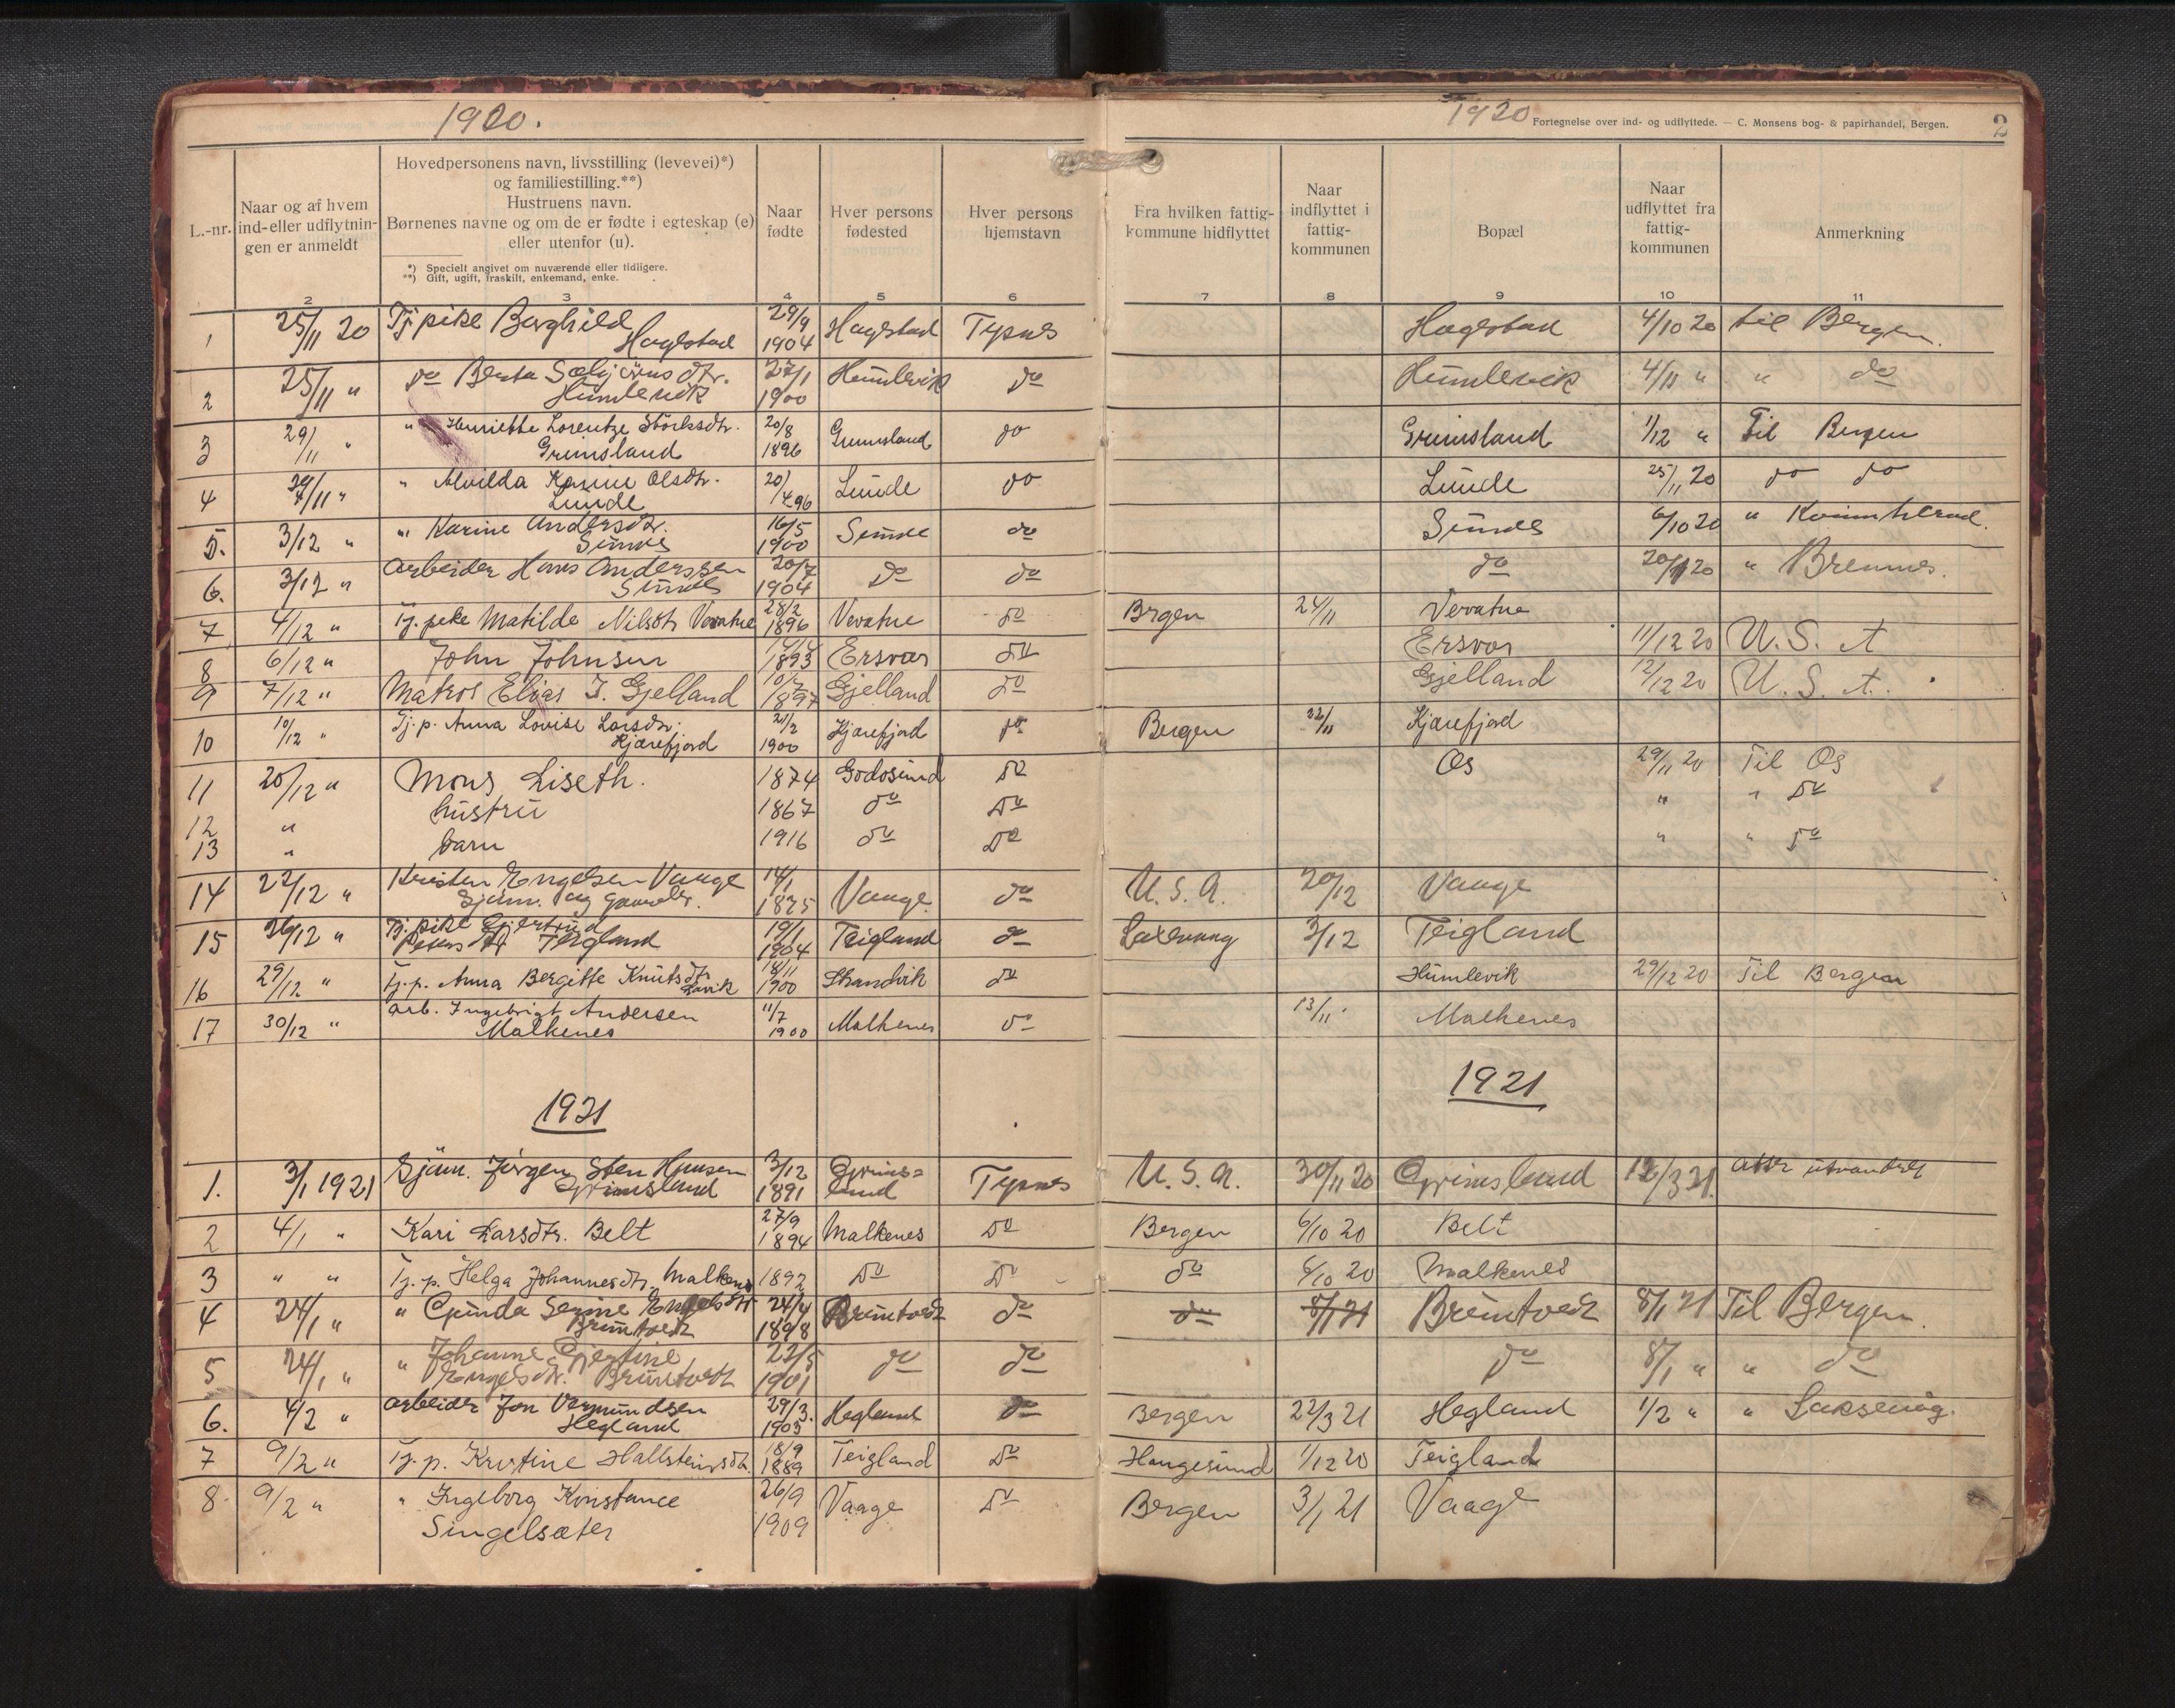 1920.
1920
Fortegnelse over ind- og udflyttede. — C. Monsens bog- & papirhandel, Bergen.
2
L.-nr.
Naar og af hvem ind- eller udflytningen er anmeldt
Hovedpersonens navn, livsstilling (levevei)*)
og familiestilling.**)
Hustruens navn.
Børnenes navne og om de er fødte i egteskap (e)
eller utenfor (u).
*) Specielt angivet om nuværende eller tidligere.
**) Gift, ugift, fraskilt, enkemand, enke.
Naar fødte
Hver persons fødested
Hver persons hjemstavn
Fra hvilken fattigkommune hidflyttet
Naar indflyttet i fattigkommunen
Bopæl
Naar udflyttet fra fattigkommunen
Anmerkning
2 3 4 5 6 7 8 9 10 11
1 25/11 20 Tj pike Borghild Hagestad 29/9 1904 Hagestad Tysnes Hagestad 4/10 20 til Bergen.
2 25/11 " do Berta Sæbjörnsdtr. Humlevik 27/1 1900 Humlevik do Humlevik 4/11 " " do
3 29/11 " " Henriette Lorentze Störksdtr. Grimsland 20/8 1896 Grimsland do Grimsland 1/12 " Til Bergen
4 29/11 " " Alvilda Karine Olsdtr. Lunde 20/4 96 Lunde do Lunde 25/11 20 do do
5. 3/12 " " Karine Andersdtr. Sunde 16/5 1900 Sunde do Sunde 6/10 20 " Kvinnherad.
6. 3/12 " Arbeider Hans Anderssen Sunde 20/7 1904 do do do 20/11 20 " Bremnes.
7 4/12 " Tj. pike Matilde Nilsdtr Vevatne 28/2 1896 Vevatne do Brgen 24/11 Vevatne
8 6/12 " John Johnsen 1893 Ersvær do Ersvær 11/12 20 U.S.A
9 7/12 " Matros Elias J. Gjelland 10/7 1897 Gjelland do Gjelland 12/12 20 U.S.A.
10 10/12 " Tj. p. Anna Lovise Larsdtr. Kjærefjord 21/2 1900 Kjærefjord do Bergen 22/11 Kjærefjord
11 20/12 " Mons Liseth. 1874 Godosund do Os 29/11 20 Til Os
12 " hustru 1867 do do " " do
13 " barn 1916 do do " " do
14 22/12 " Kristen Engelsen Vaage Sjöm. og gaardbr. 14/1 1875 Vaage do U.S.A. 20/12 Vaage
15 26/12 " Tj. pike Gjertrud Petersdtr Teigland 19/1 1904 Teigland do Laxevaag 3/12 Teigland
16 29/12 " Tj. p. Anna Bergitte Knutsdtr Lavik 18/11 1900 Strandvik do Humlevik 29/12 20 Til Bergen
17 30/12 " Arb. Ingebrigt Andersen Malkenes 11/7 1900 Malkenes do 13/11 Malkenes
1921
1921
1. 3/1 1921 Sjöm. Jörgen Sten Hansen Grimsland 3/12 1891 Grims=land Tysnes U.S.A. 30/11 20 Grimsland 12/3 21. atter utvandret
2 4/1 " Kari Larsdtr. Belt 27/9 1894 Malkenes do Bergen 6/10 20 Belt
3 " " Tj. p. Helga Johannesdtr. Malkenes 1892 do do do 6/10 20 Malkenes
4 24/1 " " Gunda Serine Engelsdtr Bruntvedt 24/4 1898 Bruntvedt do do 8/1 21 Bruntvedt 8/1 21 Til Bergen.
5 24/1 " " Johanne Gjertine Engelsdtr. Bruntvedt 22/5 1901 do do do 8/1 " " do
6. 4/2 " Arbeider Jon Vermundsen Hegland 29/3. 1903 Hegland do Bergen 22/3 21 Hegland 1/2 " " Laksevåg.
7 9/2 " Tj. p. Kristine Hallsteinsdtr. 18/9 1889 Teigland do Haugesund 1/12 20 Teigland
8 9/2 " " Ingeborg Konstance Singelsæter 26/9 1909 Vaage do Bergen 3/1 21 Vaage